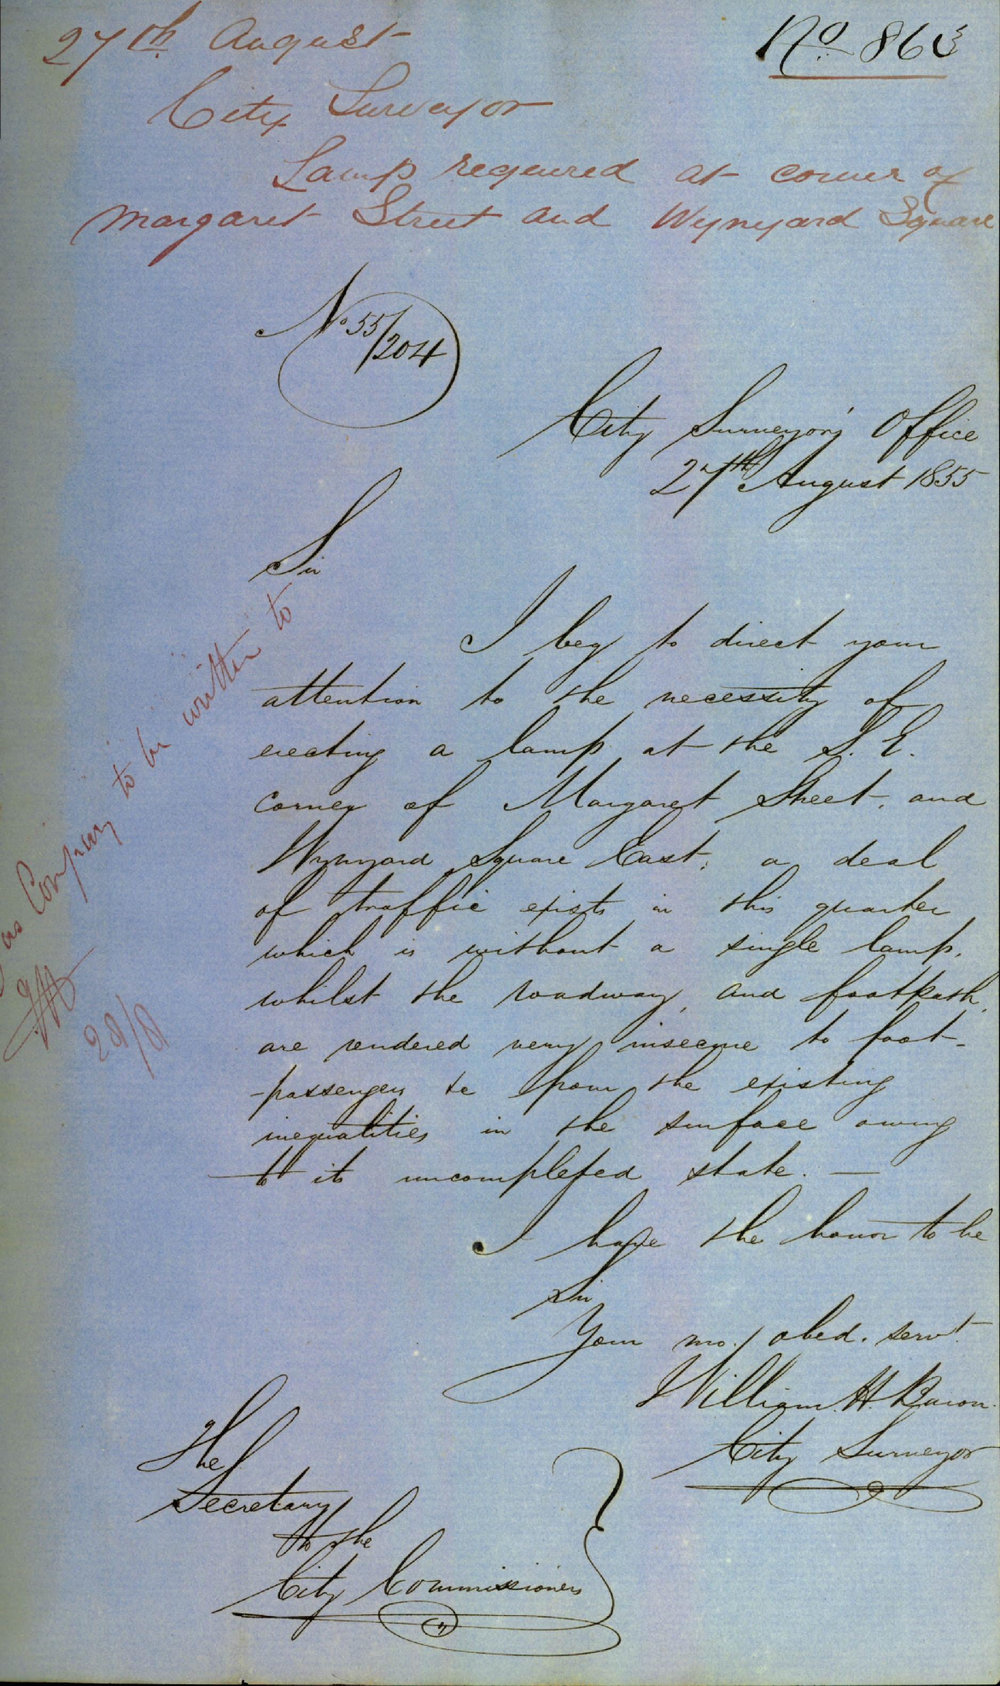 27th August
No. 863
City Surveyor
Lamp required at corner of
Margaret Street and Wynyard Square
No 55/204
City Surveyor's Office
27th August 1855
Sir
I beg to direct your
attention to the necessity of
erecting a lamp at the S. E.
corner of Margaret Street, and
Wynyard Square East; a deal
of traffic exists in this quarter
which is without a single lamp,
whilst the roadway, and footpath,
are rendered very insecure to foot-
passengers &c from the existing
inequalities in the surface owing
to its uncompleted state. —
I have the honor to be
Sir
Your mo. obed. servt.
William H.
City Surveyor
The
Secretary
to the
City Commissioners
Gas Company to be written to
28/8